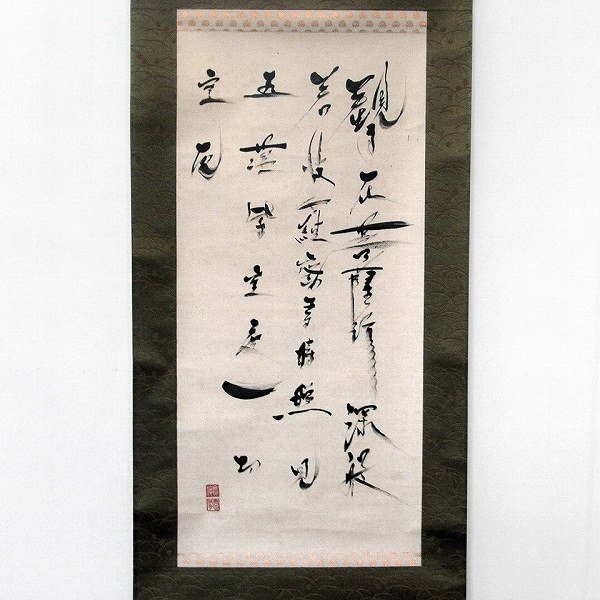 觀自在菩薩行深般
若波羅蜜多時照見
五蘊皆空度一切
苦厄